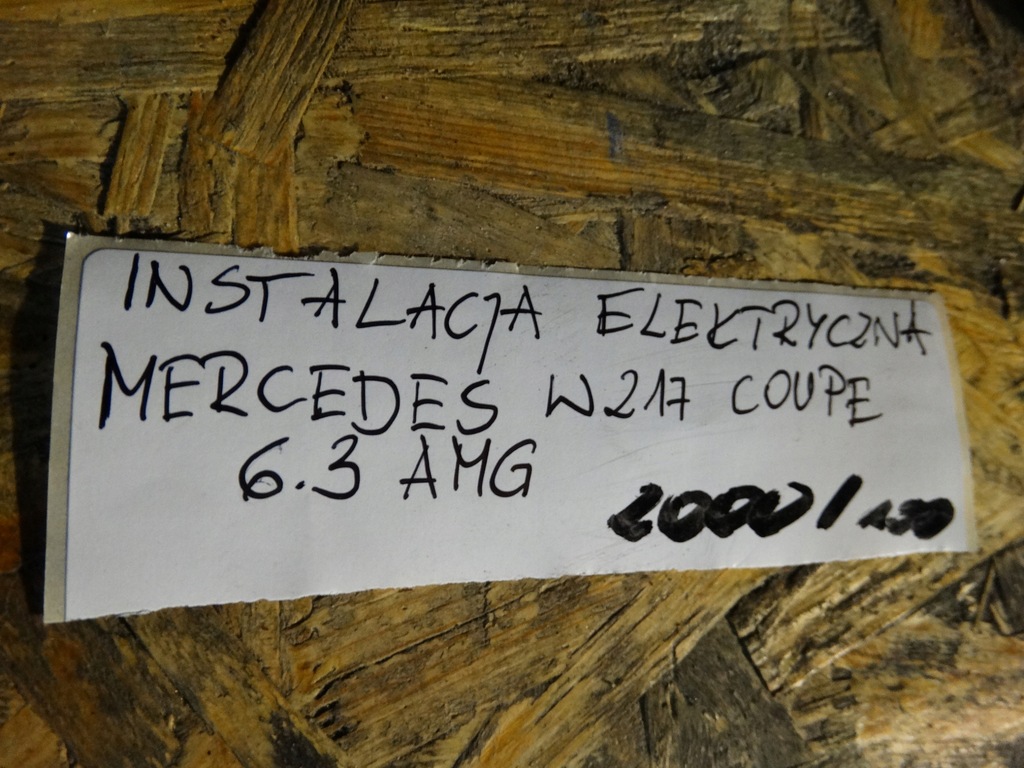 INSTALACJA ELEKTRYCZNA
MERCEDES W217 COUPE
6.3 AMG
2000/150